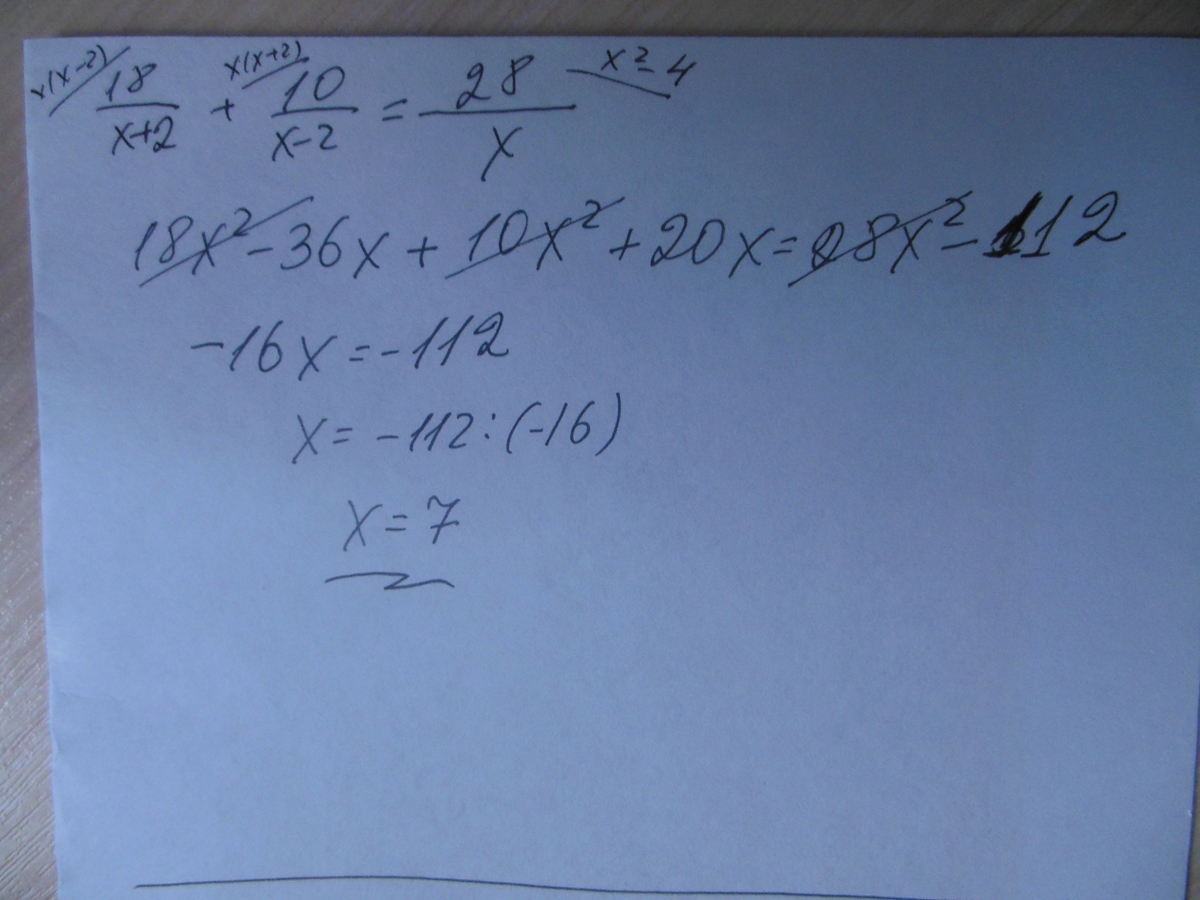 x(x-2) 18/(x+2) + x(x+2) 10/(x-2) = 28/x x²-4
18x² - 36x + 10x² + 20x = 28x² - 112
-16x = -112
x = -112 : (-16)
x = 7